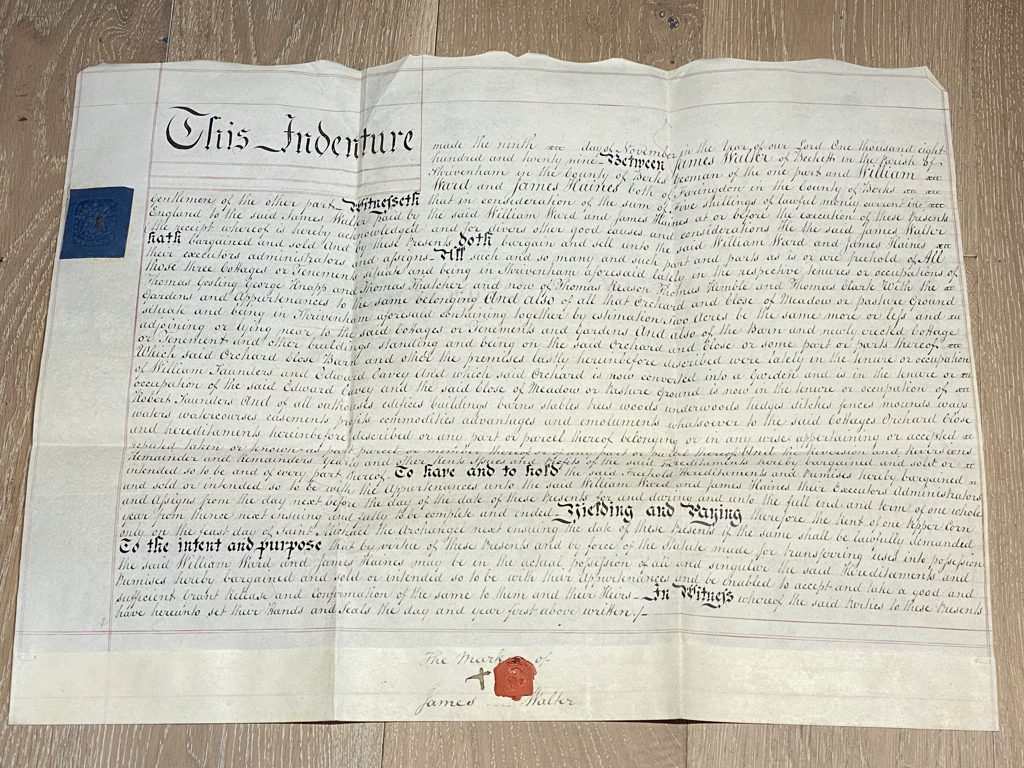 This Indenture
made the ninth day of November in the Year of our Lord One thousand eight
hundred and twenty nine Between James Walter of Beckett in the Parish of
Shrivenham in the County of Berks Yeoman of the one part and William
Ward and James Haines both of Farringdon in the County of Berks
Gentlemen of the other part Witnesseth that in consideration of the sum of Five shillings of lawful money current in
England to the said James Walter paid by the said William Ward and James Haines at or before the execution of these Presents
the receipt whereof is hereby acknowledged and for divers other good causes and considerations He the said James Walter
hath bargained and sold And by these Presents doth bargain and sell unto the said William Ward and James Haines
their executors administrators and assigns All such and so many and such part and parts as is or are freehold of All
those three Cottages or Tenements situate and being in Shrivenham aforesaid lately in the respective tenures or occupations of
Thomas Gosling George Knapp and Thomas Thatcher and now of Thomas Reason Thomas Kimble and Thomas Clark With the
Gardens and Appurtenances to the same belonging And also of all that Orchard and Close of Meadow or pasture Ground
situate and being in Shrivenham aforesaid containing together by estimation Two Acres be the same more or less and
adjoining or lying near to the said Cottages or Tenements and Gardens And also of the Barn and newly erected Cottage
or Tenement and other buildings standing and being on the said Orchard and Close or some part or parts thereof
Which said Orchard Close Barn and other the premises lastly hereinbefore described were lately in the tenure or occupation
of William Saunders and Edward Cavey And which said Orchard is now converted into a Garden and is in the tenure or
occupation of the said Edward Cavey and the said Close of Meadow or Pasture Ground is now in the tenure or occupation of
Robert Saunders And of all outhouses edifices buildings barns stables trees woods underwoods hedges ditches fences mounds ways
waters watercourses easements profits commodities advantages and emoluments whatsoever to the said Cottages Orchard Close
and hereditaments hereinbefore described or any part or parcel thereof belonging or in any wise appertaining or accepted
reputed taken or known as part parcel or member thereof or of any part or parcel thereof And the reversion and reversions
Remainder and Remainders Yearly and other Rents Issues and Profits of the said Hereditaments hereby bargained and sold or
intended so to be and of every part thereof To have and to hold the said Freehold Hereditaments and Premises hereby bargained
and sold or intended so to be with the Appurtenances unto the said William Ward and James Haines their Executors Administrators
and Assigns from the day next before the day of the date of these Presents for and during and unto the full end and term of one whole
year from thence next ensuing and fully to be complete and ended Yielding and Paying therefore the Rent of one Pepper Corn
only on the feast day of Saint Michael the Archangel next ensuing the date of these Presents if the same shall be lawfully demanded
To the intent and purpose that by virtue of these Presents and by force of the Statute made for transferring uses into possession
the said William Ward and James Haines may be in the actual possession of all and singular the said Hereditaments and
Premises hereby bargained and sold or intended so to be with their Appurtenances and be enabled to accept and take a good and
sufficient Grant Release and Confirmation of the same to them and their Heirs In Witness whereof the said Parties to these Presents
have hereunto set their Hands and Seals the day and year first above written
The Mark of
James Walter